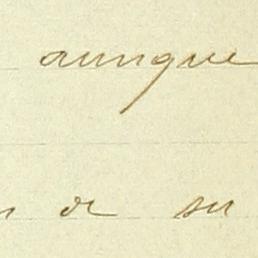 aunque
de su